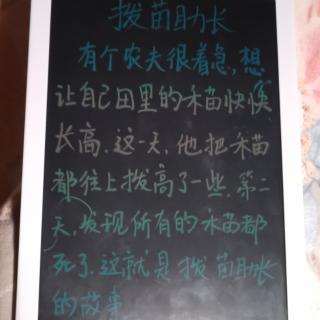 拨苗助长
有个农夫很着急,想
让自己田里的禾苗快快
长高.这一天,他把禾苗
都往上拨高了一些.第二
天,发现所有的禾苗都
死了.这就是拨苗助长
的故事.